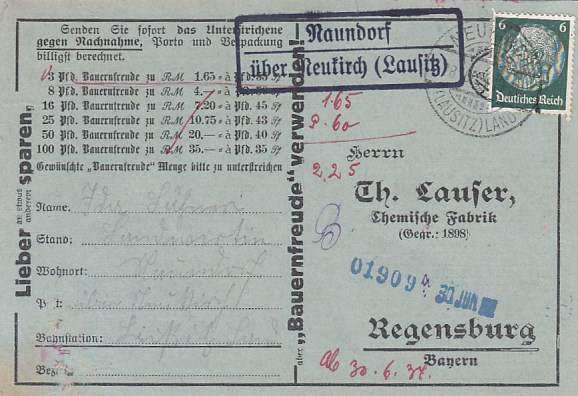 Senden Sie sofort das Unterstrichene
gegen Nachnahme, Porto und Verpackung
billigst berechnet.
3 Pfd. Bauernfreude zu R.M. 1.65 = à Pfd. 55 Pf
8 Pfd. Bauernfreude zu R.M. 4.— = à Pfd. 50 Pf
16 Pfd. Bauernfreude zu R.M. 7.20 = à Pfd. 45 Pf
25 Pfd. Bauernfreude zu R.M. 10.75 = à Pfd. 43 Pf
50 Pfd. Bauernfreude zu R.M. 20.— = à Pfd. 40 Pf
100 Pfd. Bauernfreude zu R.M. 35.— = à Pfd. 35 Pf
Gewünschte „Bauernfreude" Menge bitte zu unterstreichen
Name: Ida
Stand: Landwirtin
Wohnort: Naundorf
über Neukirch
Bahnstation:
Lieber an etwas anderem sparen,
aber „Bauernfreude" verwenden!
Naundorf
über Neukirch (Lausitz)
NEUKIRCH
(LAUSITZ) LAND
6 6
Deutsches Reich
1.65
P. 60
2,25
Herrn
Th. Lauser,
Chemische Fabrik
(Gegr.: 1898)
01909 30 JUNI
Regensburg
Bayern
ab 30.6.37.